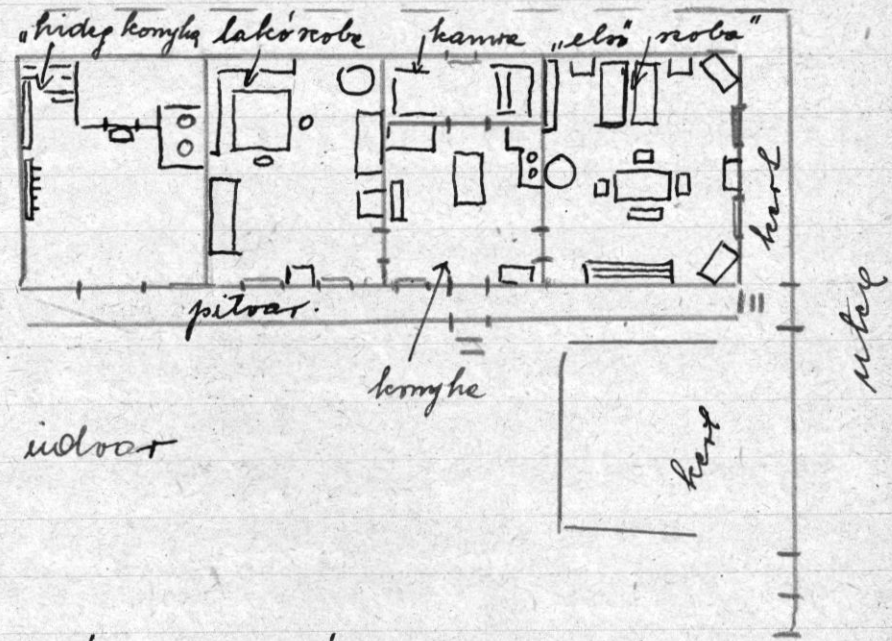 „hideg konyha
lakószoba
kamra
„első szoba"
kert
utca
pitvar.
konyha
udvar
kert